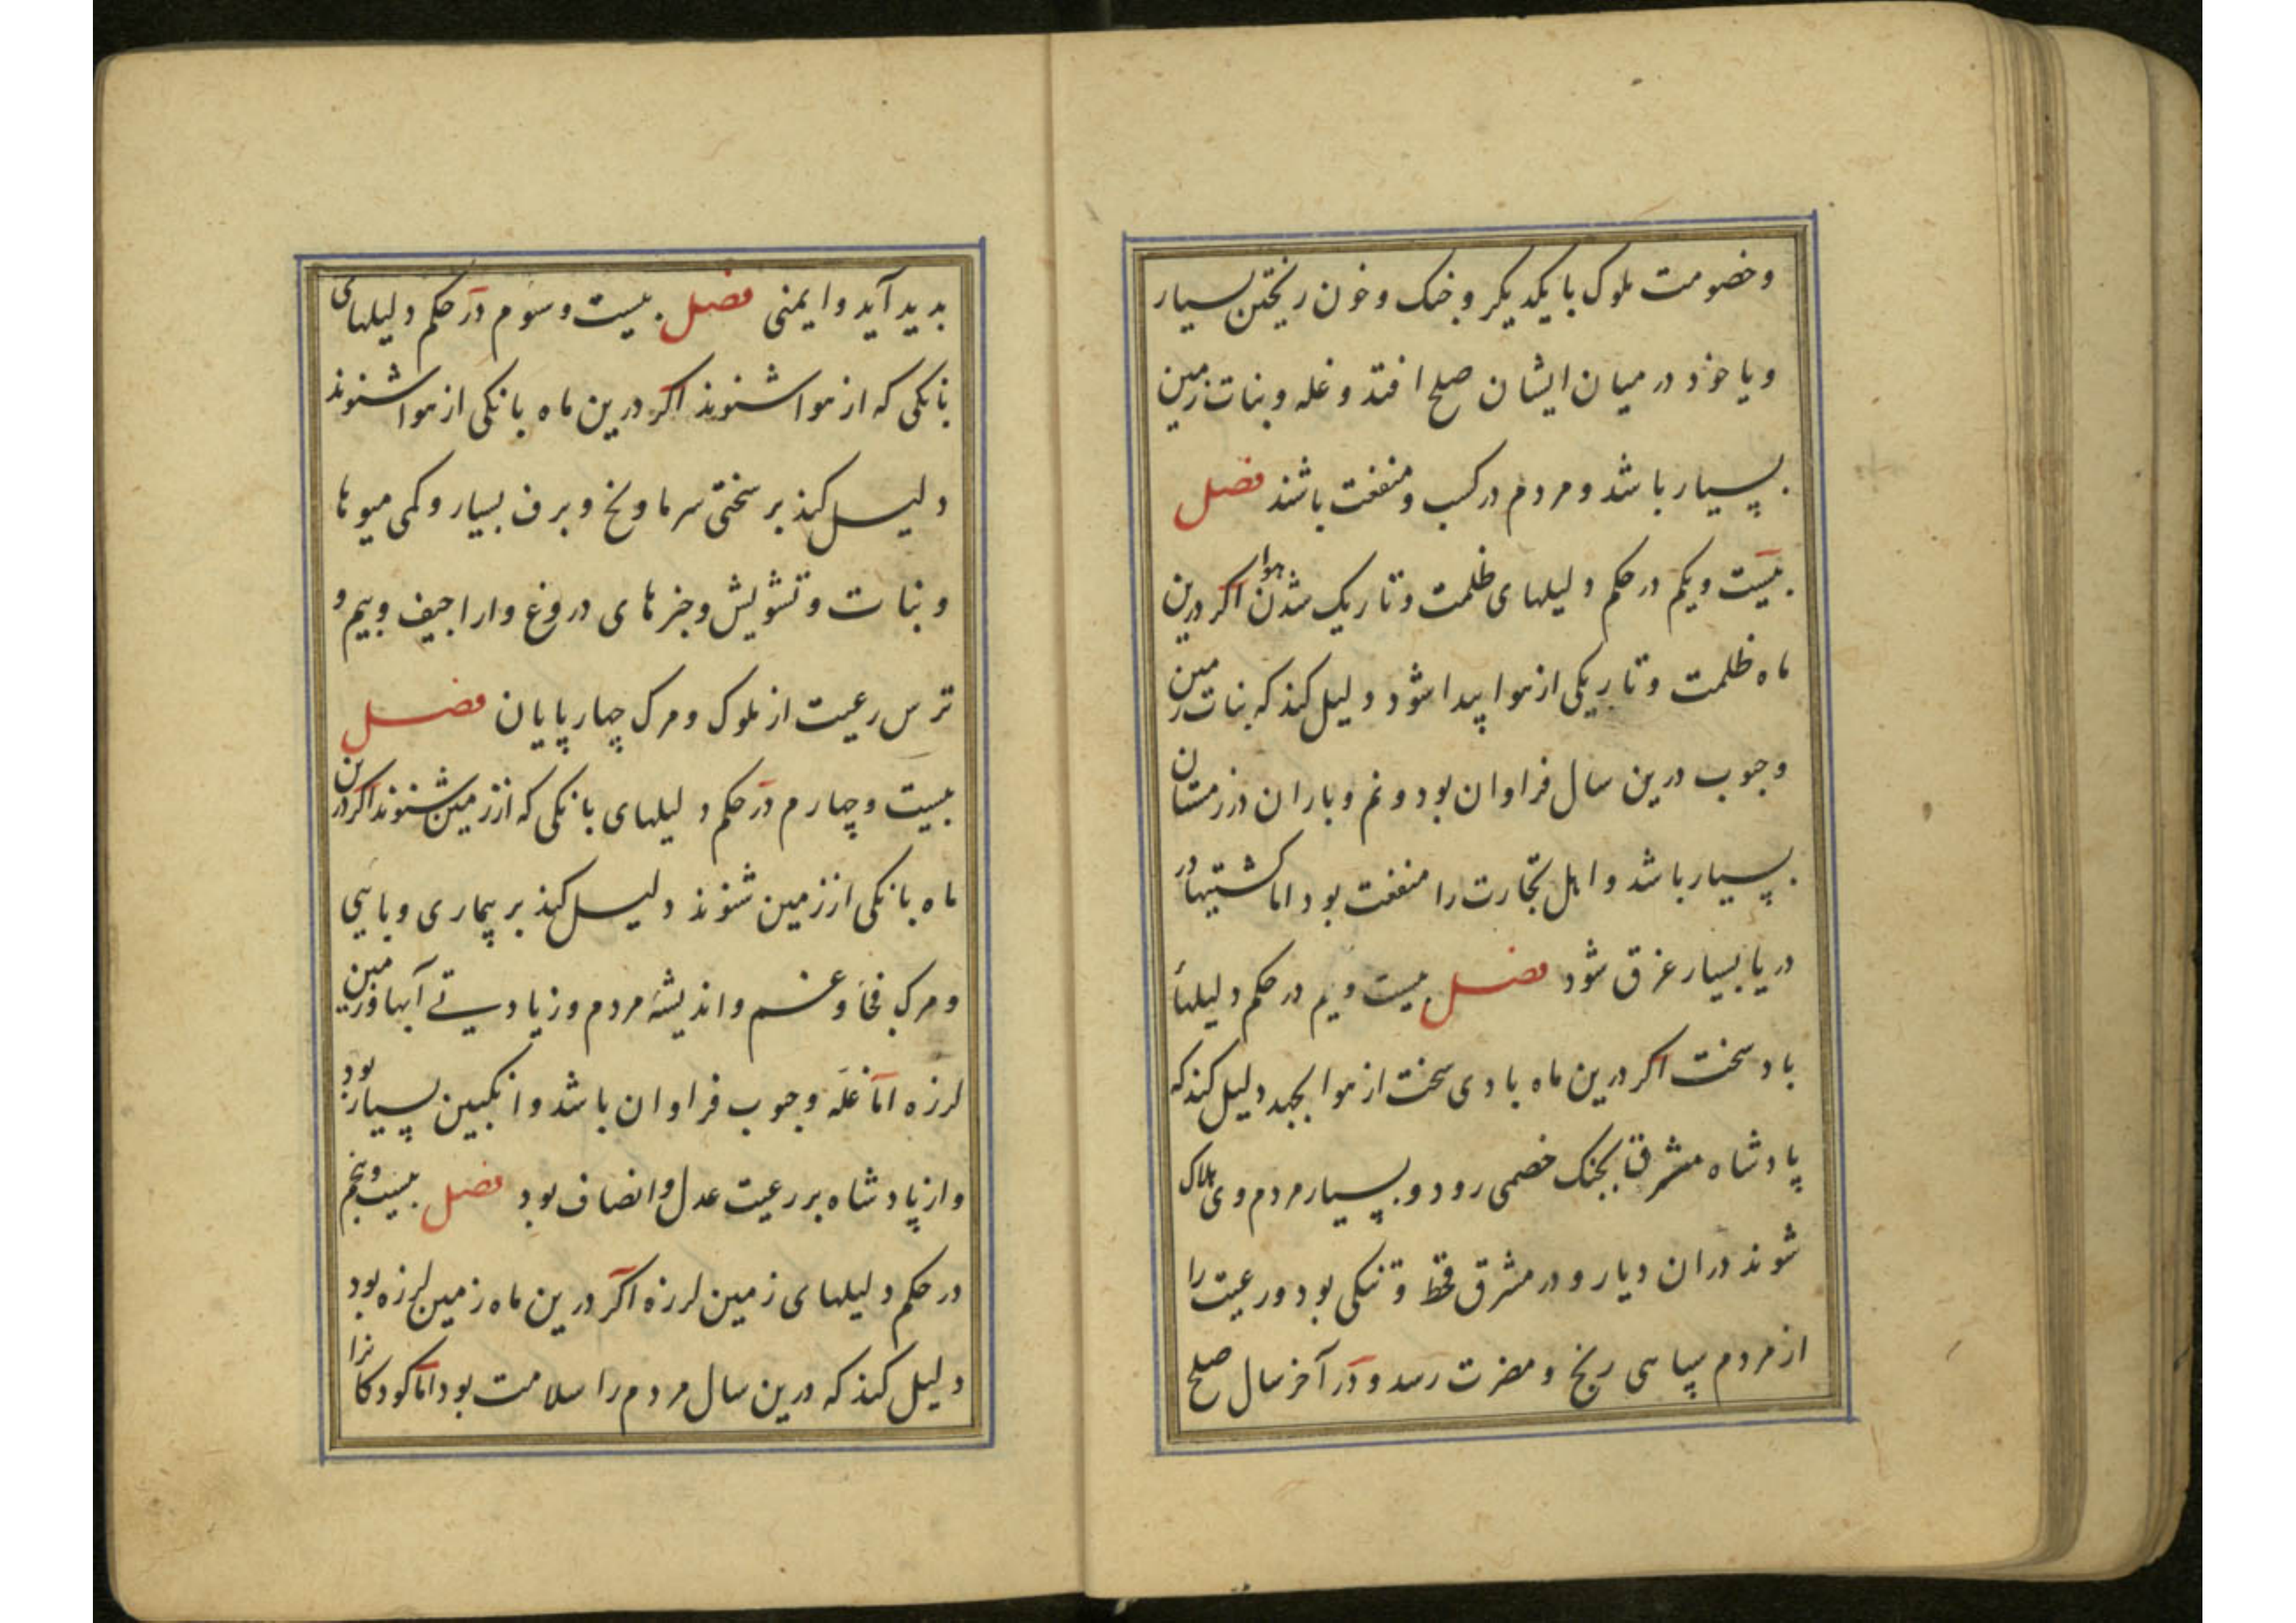 وخصومت ملوک با یکدیکر و جنک وخون ریختن بسیار
ویا خود در میان ایشان صلح افتد و غله و بنات زمین
بسیار باشد ومردم در کسب و منفعت باشند فصل
بیست ویکم در حکم دلیلهای ظلمت وتاریک شدن هوا اکر درین
ماه ظلمت وتاریکی از هوا پیدا شود دلیل کند که بنات زمین
وحبوب درین سال فراوان بود ونم وباران در زمستان
بسیار باشد واهل تجارت را منفعت بود اما کشتیها در
دریا بسیار غرق شود فصل بیست ودیم در حکم دلیلهاء
باد سخت اکر درین ماه بادی سخت از هوا بجهد دلیل کند که
پادشاه مشرق بجنک خصمی رود وبسیار مردم وی هلاک
شوند دران دیار و در مشرق قحط و تنکی بود ورعیت را
از مردم سپاهی رنج و مضرت رسد و در آخر سال صلح
بدید آید وایمنی فصل بیست وسوم در حکم دلیلهای
بانکی که از هوا شنوند اکر درین ماه بانکی از هوا شنوند
دلیل کند بر سختی سرما ویخ وبرف بسیار وکمی میوها
وبنات وتشویش وخبرهای دروغ واراجیف وبیم و
ترس رعیت از ملوک ومرک چهارپایان فصل
بیست وچهارم در حکم دلیلهای بانکی که از زمین شنوند اکر درین
ماه بانکی از زمین شنوند دلیل کند بر بیماری وبایی
ومرک فجا وغم واندیشهٔ مردم وزیادتی آبها وزمین
لرزه اما غله وحبوب فراوان باشد وانکبین بسیار بود
واز پادشاه بر رعیت عدل وانصاف بود فصل بیست وپنجم
در حکم دلیلهای زمین لرزه اکر درین ماه زمین لرزه بود
دلیل کند که درین سال مردم را سلامت بود اما کودکانرا